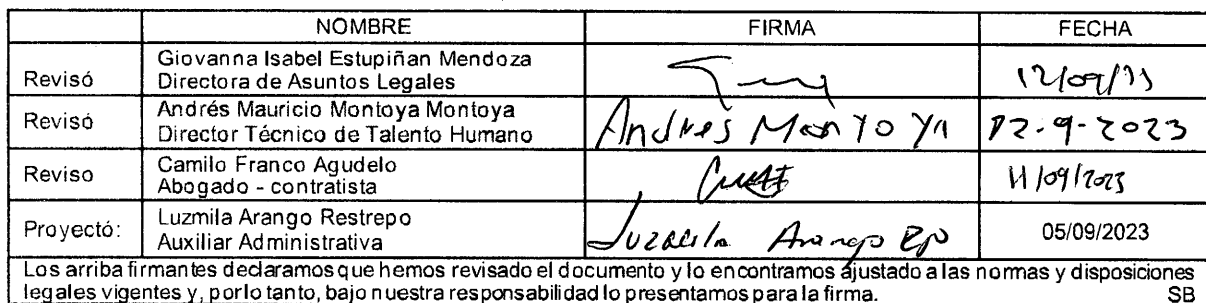 NOMBRE FIRMA FECHA
Revisó Giovanna Isabel Estupiñan Mendoza
Directora de Asuntos Legales 12/09/23
Revisó Andrés Mauricio Montoya Montoya
Director Técnico de Talento Humano Andres Montoya 12-9-2023
Reviso Camilo Franco Agudelo
Abogado - contratista 11/09/2023
Proyectó: Luzmila Arango Restrepo
Auxiliar Administrativa Luzmila Arango 05/09/2023
Los arriba firmantes declaramos que hemos revisado el documento y lo encontramos ajustado a las normas y disposiciones
legales vigentes y, por lo tanto, bajo nuestra responsabilidad lo presentamos para la firma. SB